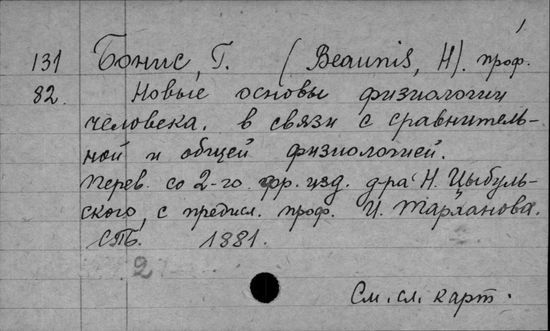 131 Бонис, Г. (Beaunis, H). проф.
82. Новые основы физиологии
человека. в связи с сравнитель-
ной и общей физиологией.
Перев. со 2-го фр. изд. д-ра Н. Цыбуль-
ского, с предисл. проф. И. Тарханова.
СПБ. 1881.
2
См. сл. карт.